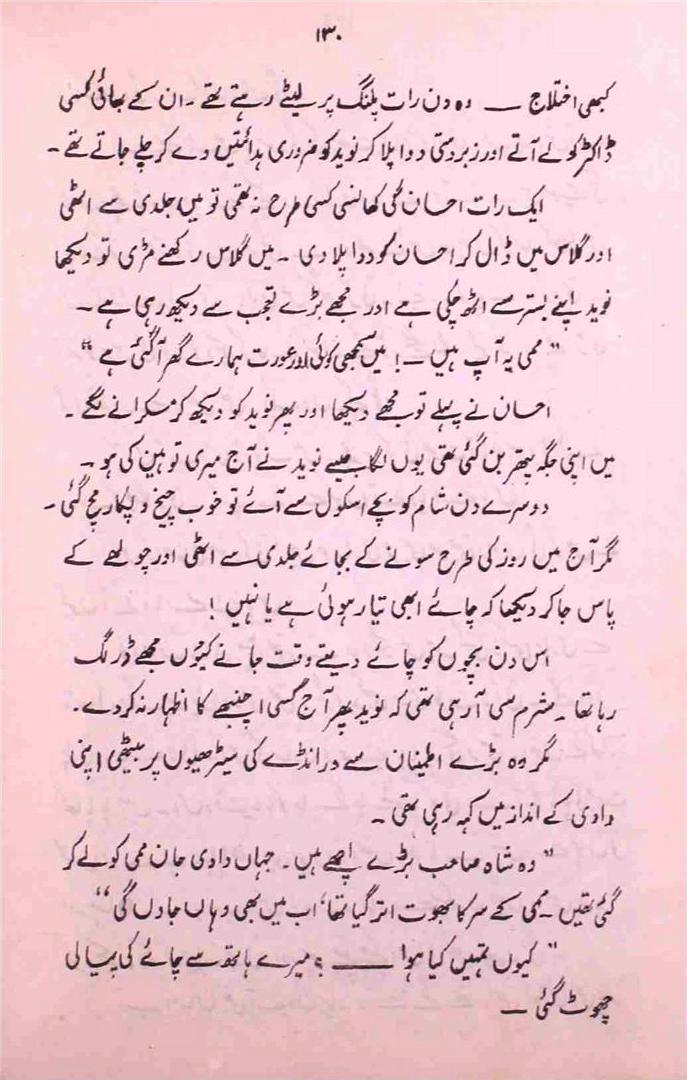 ۱۳۰
کبھی اختلاج ـــ وہ دن رات پلنگ پر لیٹے رہتے تھے ۔ ان کے بھائی کسی
ڈاکٹر کو لے آتے اور زبردستی دوا پلا کر نوید کو ضروری ہدائتیں دے کر چلے جاتے تھے ۔
ایک رات احسان کی کھانسی کسی طرح نہ تھمی تو میں جلدی سے اٹھی
اور گلاس میں ڈال کر احسان کو دوا پلا دی ۔ میں گلاس رکھنے مڑی تو دیکھا
نوید اپنے بستر سے اٹھ چکی ہے اور مجھے بڑے تعجب سے دیکھ رہی ہے ۔
" ممی یہ آپ ہیں ـــ ! میں سمجھی کوئی اور عورت ہمارے گھر آ گئی ہے "
احسان نے پہلے تو مجھے دیکھا اور پھر نوید کو دیکھ کر مسکرانے لگے ۔
میں اپنی جگہ پتھر بن گئی تھی یوں لگا جیسے نوید نے آج میری توہین کی ہو ۔
دوسرے دن شام کو بچے اسکول سے آئے تو خوب چیخ و پکار مچ گئی ۔
مگر آج میں روز کی طرح سونے کے بجائے جلدی سے اٹھی اور چولھے کے
پاس جا کر دیکھا کہ چائے ابھی تیار ہوئی ہے یا نہیں !
اس دن بچوں کو چائے دیتے وقت جانے کیوں مجھے ڈر لگ
رہا تھا ۔ شرم سی آ رہی تھی کہ نوید پھر آج کسی اچنبھے کا اظہار نہ کر دے ۔
مگر وہ بڑے اطمینان سے ورانڈے کی سیڑھیوں پر بیٹھی اپنی
دادی کے انداز میں کہہ رہی تھی ۔
" وہ شاہ صاحب بڑے اچھے ہیں ۔ جہاں دادی جان ممی کو لے کر
گئی تھیں ۔ ممی کے سر کا بھوت اتر گیا تھا ، اب میں بھی وہاں جاؤں گی "
" کیوں تمہیں کیا ہوا ـــــ ؟ میرے ہاتھ سے چائے کی پیالی
چھوٹ گئی ـــ